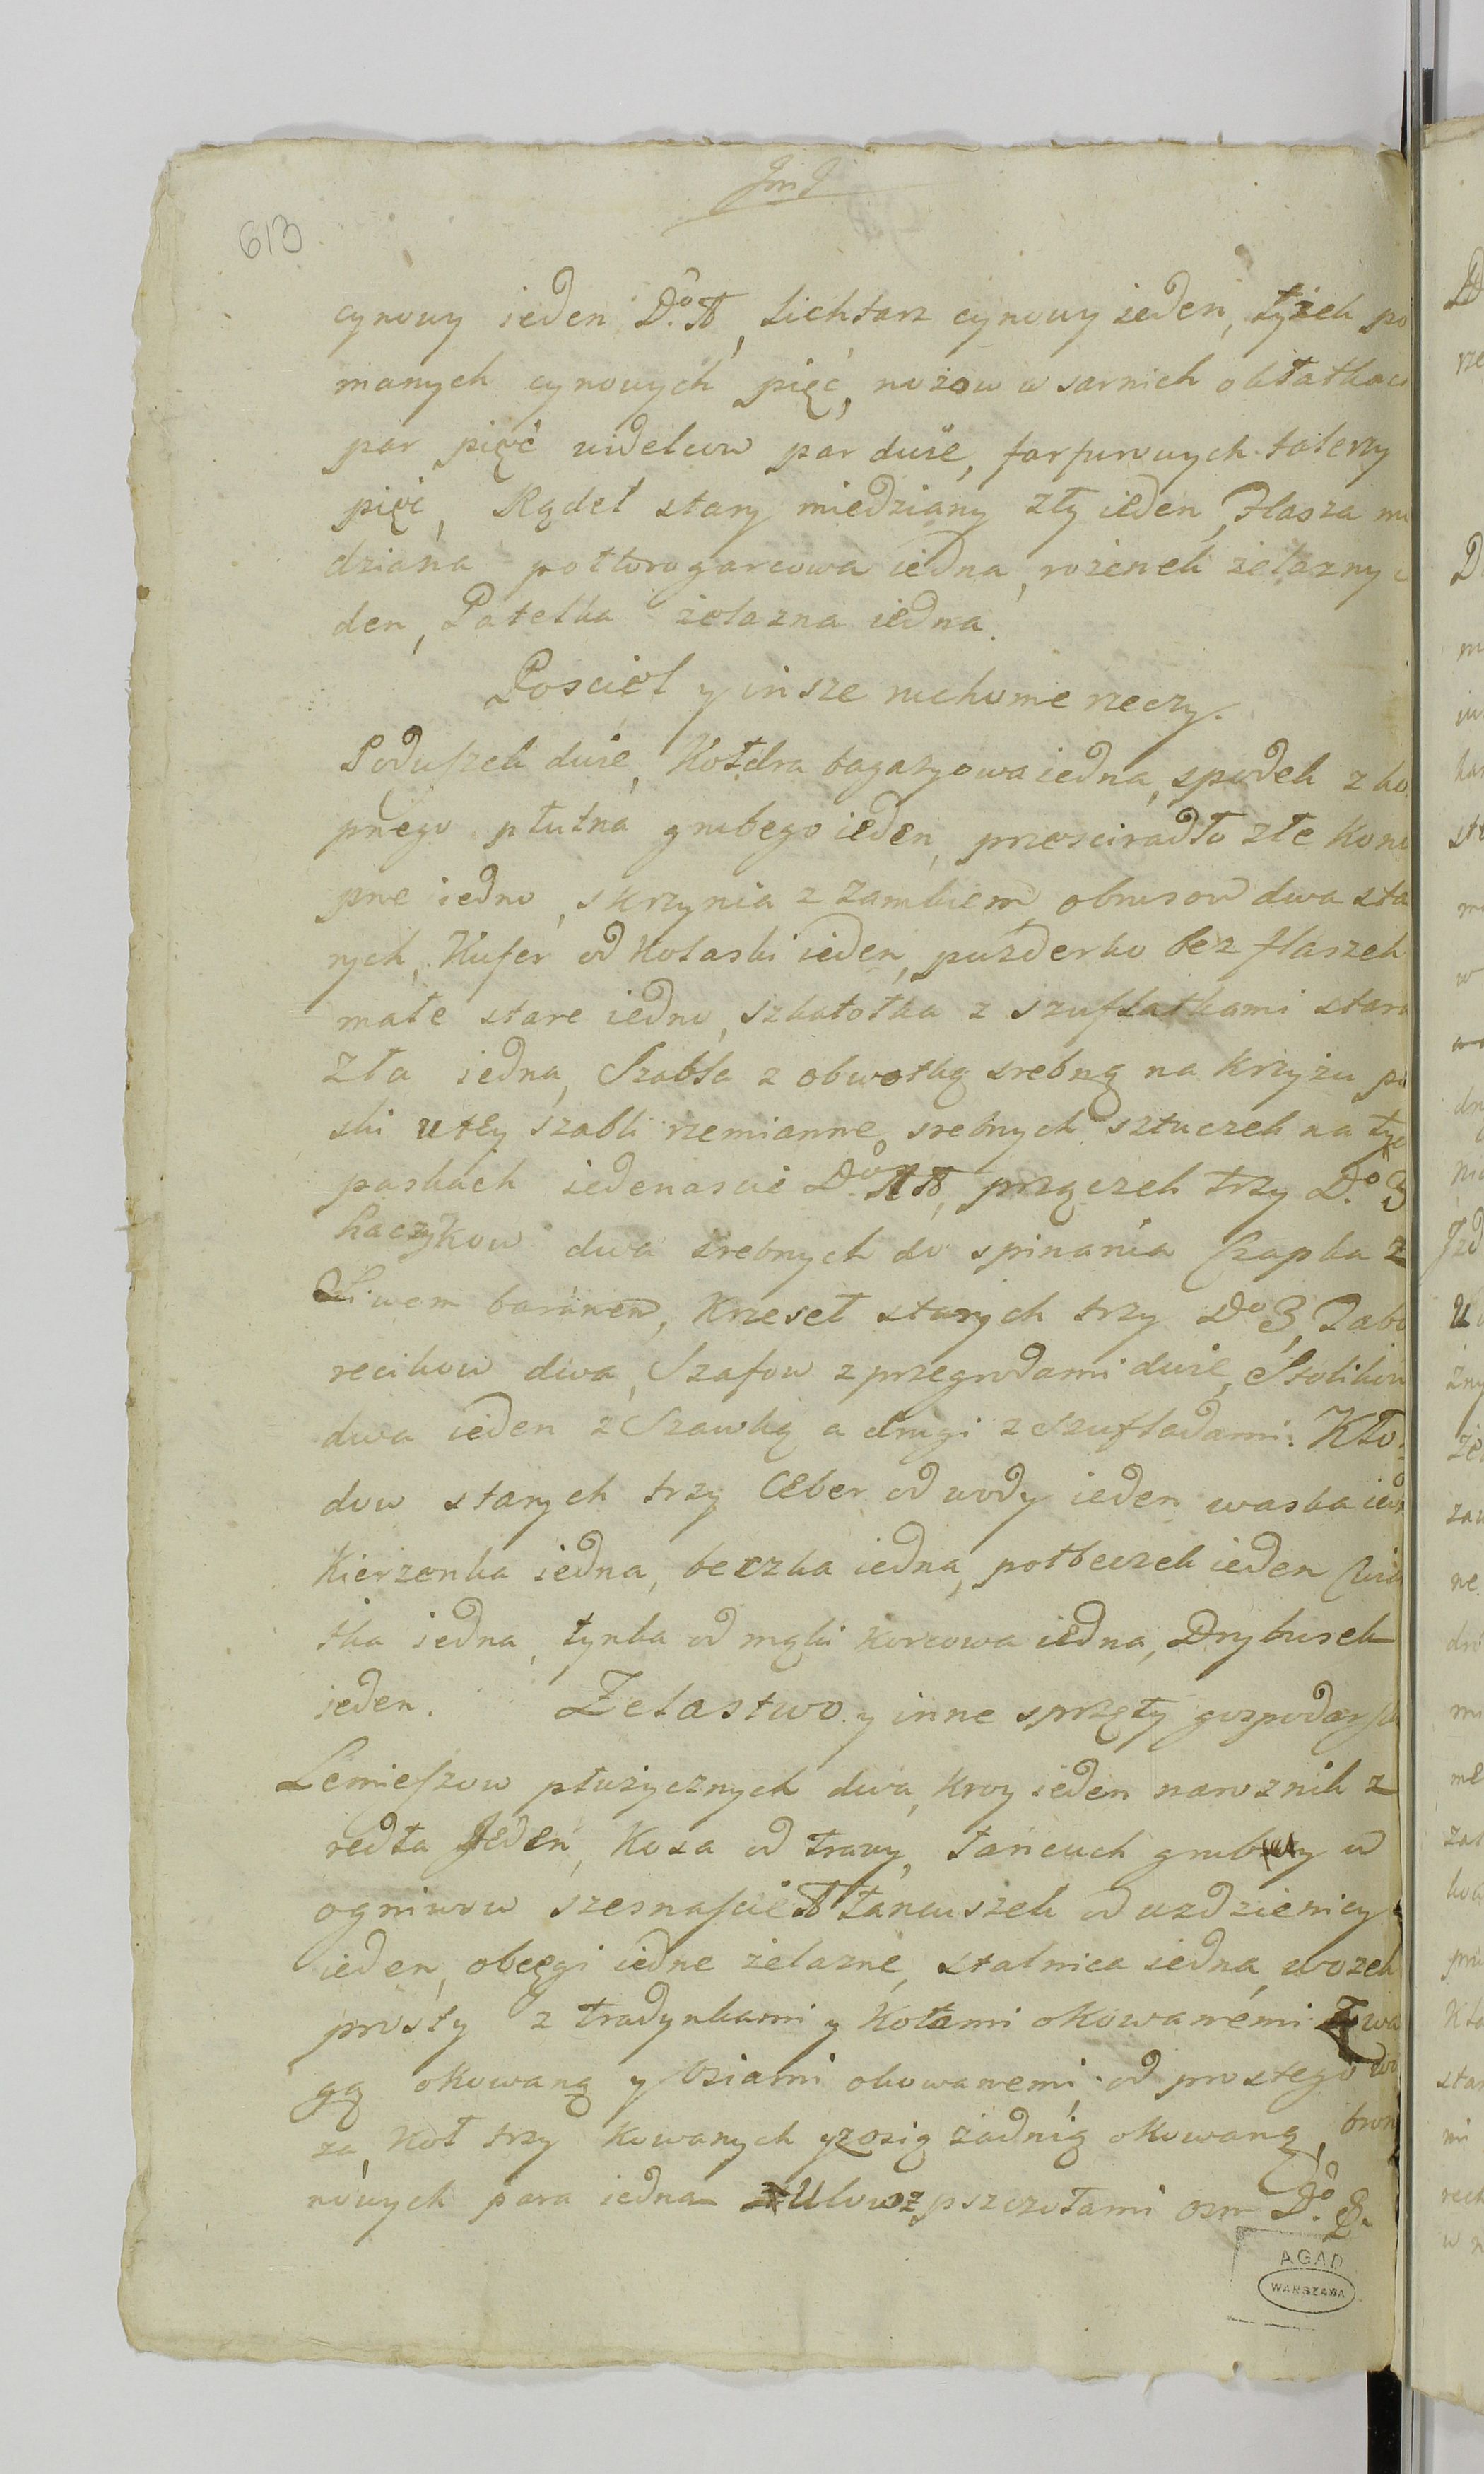 613
cynowy ieden D:o A, Lichtarz cynowy ieden, łyżek po
manych cynowych pięć, nożow w sarnich okłatkac
par pięć widelcow par dwie, farfurowych talerzy
pięć, Rądel stary miedziany zły ieden, Flasza mi
dziana połtorogarcowa iedna, rożenek żelazny i
den, Patelka żelazna iedna.
Posciel y insze ruchome rzeczy.
Poduszek dwie, Kołdra bagazyowa iedna, spodek z ko
pnego płutna grubego ieden, przescieradło złe Kono
pne iedno, skrzynia z Zamkiem, obrusow dwa sta
rych, Kufer od Kolaski ieden, puzderko bez flaszek
małe stare iedno, szkatołka z szufłatkami stara
zła iedna, Szabla z obwotką srebną na krzyżu pa
ski u tey szabli rzemianne, srebnych sztuczek na tyc
paskach iedenascie D:o AA, przączek trzy D:o 3
haczykow dwa srebnych do spinania Czapka z
Siwem baranem, Krzeseł starych trzy D:o 3, Tabo
recikow dwa, Szafow z przegrodami dwie, Stolikow
dwa ieden z Szawką a drugi z Szufładami: Kło
dow starych trzy Ceber od wody ieden waska iedn
Kierzenka iedna, beczka iedna, połbeczek ieden Cwia
tka iedna, łynka od mąki korcowa iedna, Drybusek
ieden. Zelastwo y inne sprzęty gospodarsk
Lemieszow płużycznych dwa, Kroy ieden narożnik z
redła Jeden, Kosa od trawy, Łańcuch gruby o
ogniwow szesnascie A Łancuszek od uzdzienicy
ieden, obcęgi iedne żelazne, stalnica iedna, wozek
prosty z tradynkami y Kołami okowanemi z wa
gą okowaną y osiami okowanemi, od prostego wo
za, Koł trzy Kowanych y z osią zadnią okowaną, bron
nowych para iedna Ulow z pszczołami osm D:o 8.
AGAD
WARSZAWA